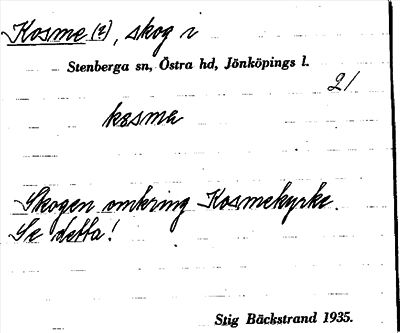 Kosme (?), skog i
Stenberga sn, Östra hd, Jönköpings l.
21
kosma
Skogen omkring Kosmekyrke.
Se detta!
Stig Bäckstrand 1935.